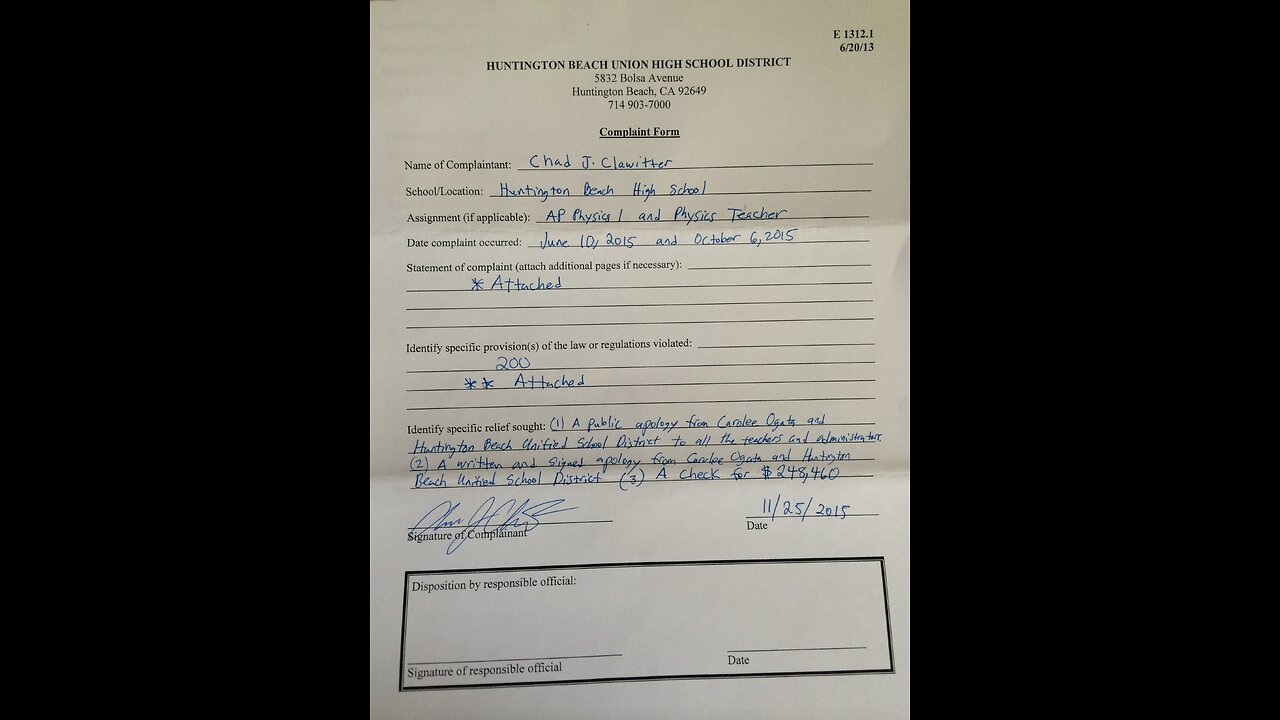 E 1312.1
6/20/13
HUNTINGTON BEACH UNION HIGH SCHOOL DISTRICT
5832 Bolsa Avenue
Huntington Beach, CA 92649
714 903-7000
Complaint Form
Name of Complaintant: Chad J. Clawitter
School/Location: Huntington Beach High School
Assignment (if applicable): AP Physics 1 and Physics Teacher
Date complaint occurred: June 10, 2015 and October 6, 2015
Statement of complaint (attach additional pages if necessary):
* Attached
Identify specific provision(s) of the law or regulations violated:
200
** Attached
Identify specific relief sought: (1) A public apology from Carolee Ogata and
Huntington Beach Unified School District to all the teachers and administrators.
(2) A written and signed apology from Carolee Ogata and Huntington
Beach Unified School District (3) A check for $248,460
11/25/2015
Signature of Complainant Date
Disposition by responsible official:
Signature of responsible official Date